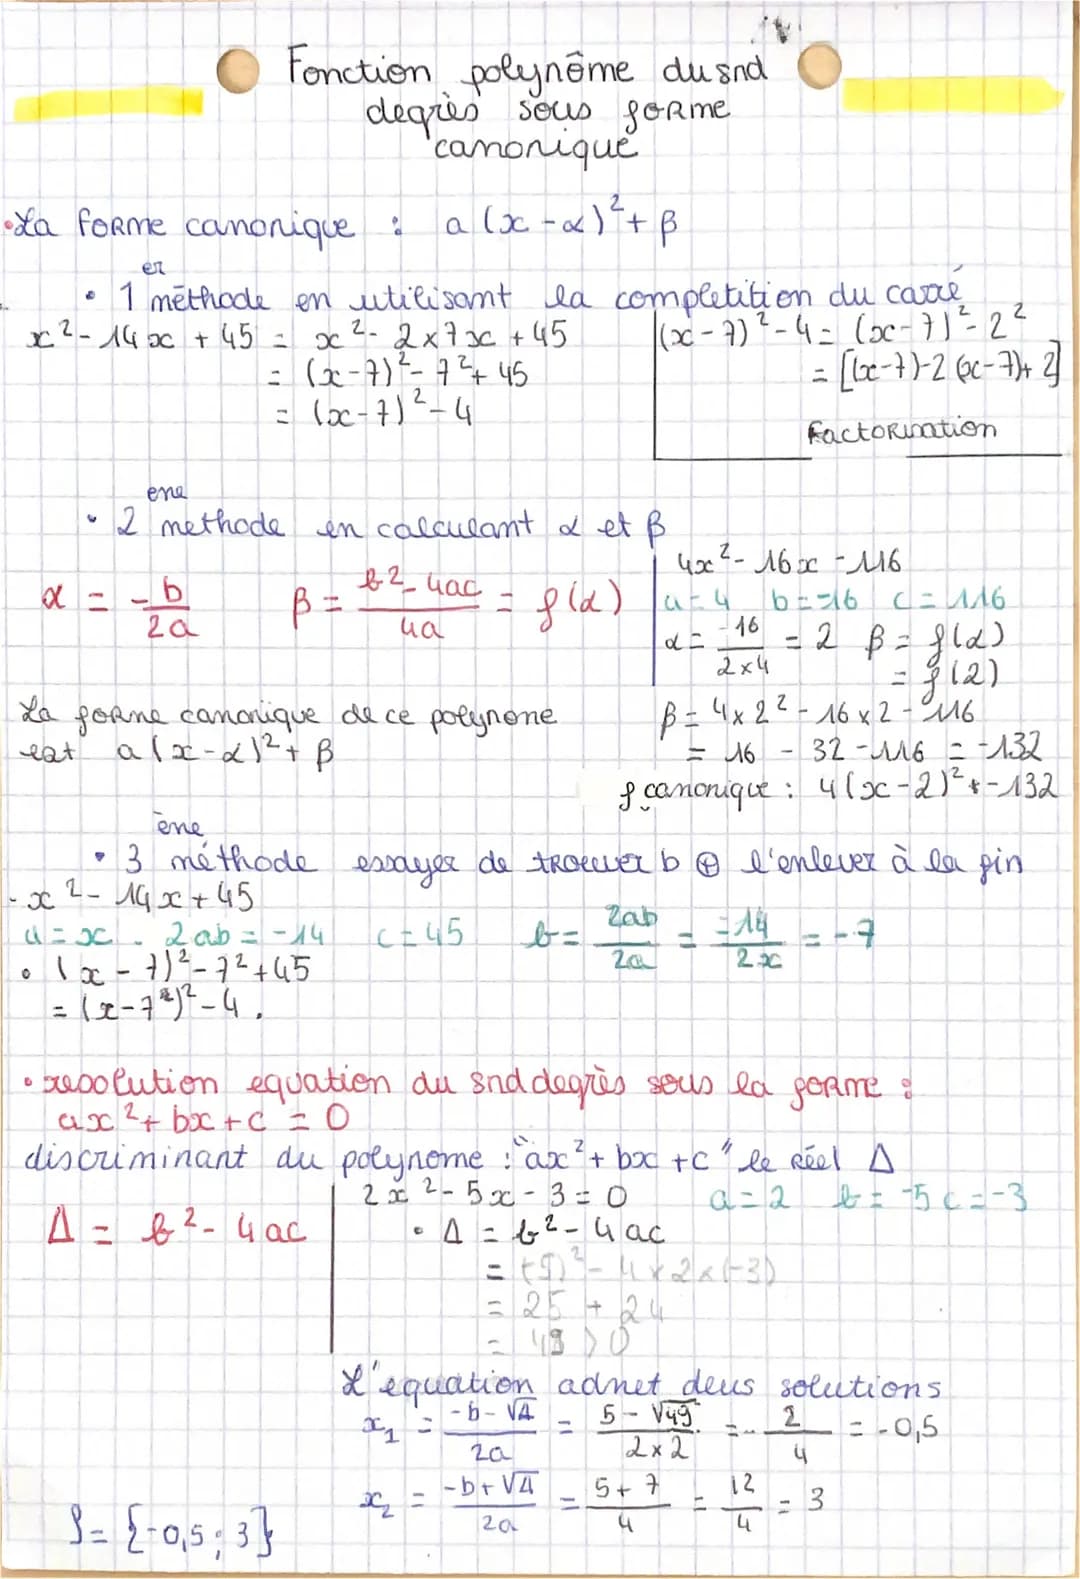 Fonction polynôme du snd
degrès sous forme
canonique
• La forme canonique : a(x-α)²+β
• 1er méthode en utilisant la completition du carré
x²-14x+45 = x²-2×7x+45
= (x-7)²-7²+45
= (x-7)²-4
(x-7)²-4 = (x-7)²-2²
= [(x-7)-2(x-7)+2]
Factorisation
• 2ene methode en calculant α et β
α = -b/2a β = b²-4ac/4a = f(α)
4x²-16x-116
a=4 b=-16 c=116
α = -16/2×4 = 2 β = f(α)
= f(2)
β = 4×2²-16×2-116
= 16 - 32 -116 = -132
f canonique : 4(x-2)²+-132
La forme canonique de ce polynone
est a(x-α)²+β
• 3ène méthode essayer de trouver b ⊕ l'enlever à la fin
- x²-14x+45
a=x . 2ab=-14 c=45 b = 2ab/2a = -14/2x = -7
• (x-7)²-7²+45
= (x-7)²-4.
• resolution equation du snd degrès sous la forme :
ax²+bx+c = 0
discriminant du polynome : "ax²+bx+c" le réel Δ
Δ = b²-4ac
2x²-5x-3=0 a=2 b=-5 c=-3
• Δ = b²-4ac
= (-5)²-4×2×(-3)
= 25 + 24
= 49 > 0
L'equation admet deus solutions
x₁ = -b-√Δ/2a = 5-√49/2×2 = - 2/4 = -0,5
x₂ = -b+√Δ/2a = 5+7/4 = 12/4 = 3
S = {-0,5 ; 3}